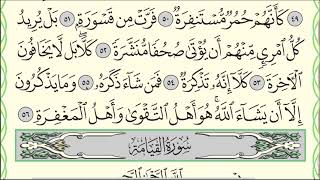 ٤٩ كَأَنَّهُمْ حُمُرٌ مُّسْتَنفِرَةٌ ٥٠ فَرَّتْ مِن قَسْوَرَةٍ ٥١ بَلْ يُرِيدُ
كُلُّ ٱمْرِئٍ مِّنْهُمْ أَن يُؤْتَىٰ صُحُفًا مُّنَشَّرَةً ٥٢ كَلَّا ۖ بَل لَّا يَخَافُونَ
ٱلْءَاخِرَةَ ٥٣ كَلَّا إِنَّهُۥ تَذْكِرَةٌ ٥٤ فَمَن شَآءَ ذَكَرَهُۥ ٥٥ وَمَا يَذْكُرُونَ
إِلَّا أَن يَشَآءَ ٱللَّهُ ۚ هُوَ أَهْلُ ٱلتَّقْوَىٰ وَأَهْلُ ٱلْمَغْفِرَةِ ٥٦
سُورَةُ ٱلْقِيَامَةِ